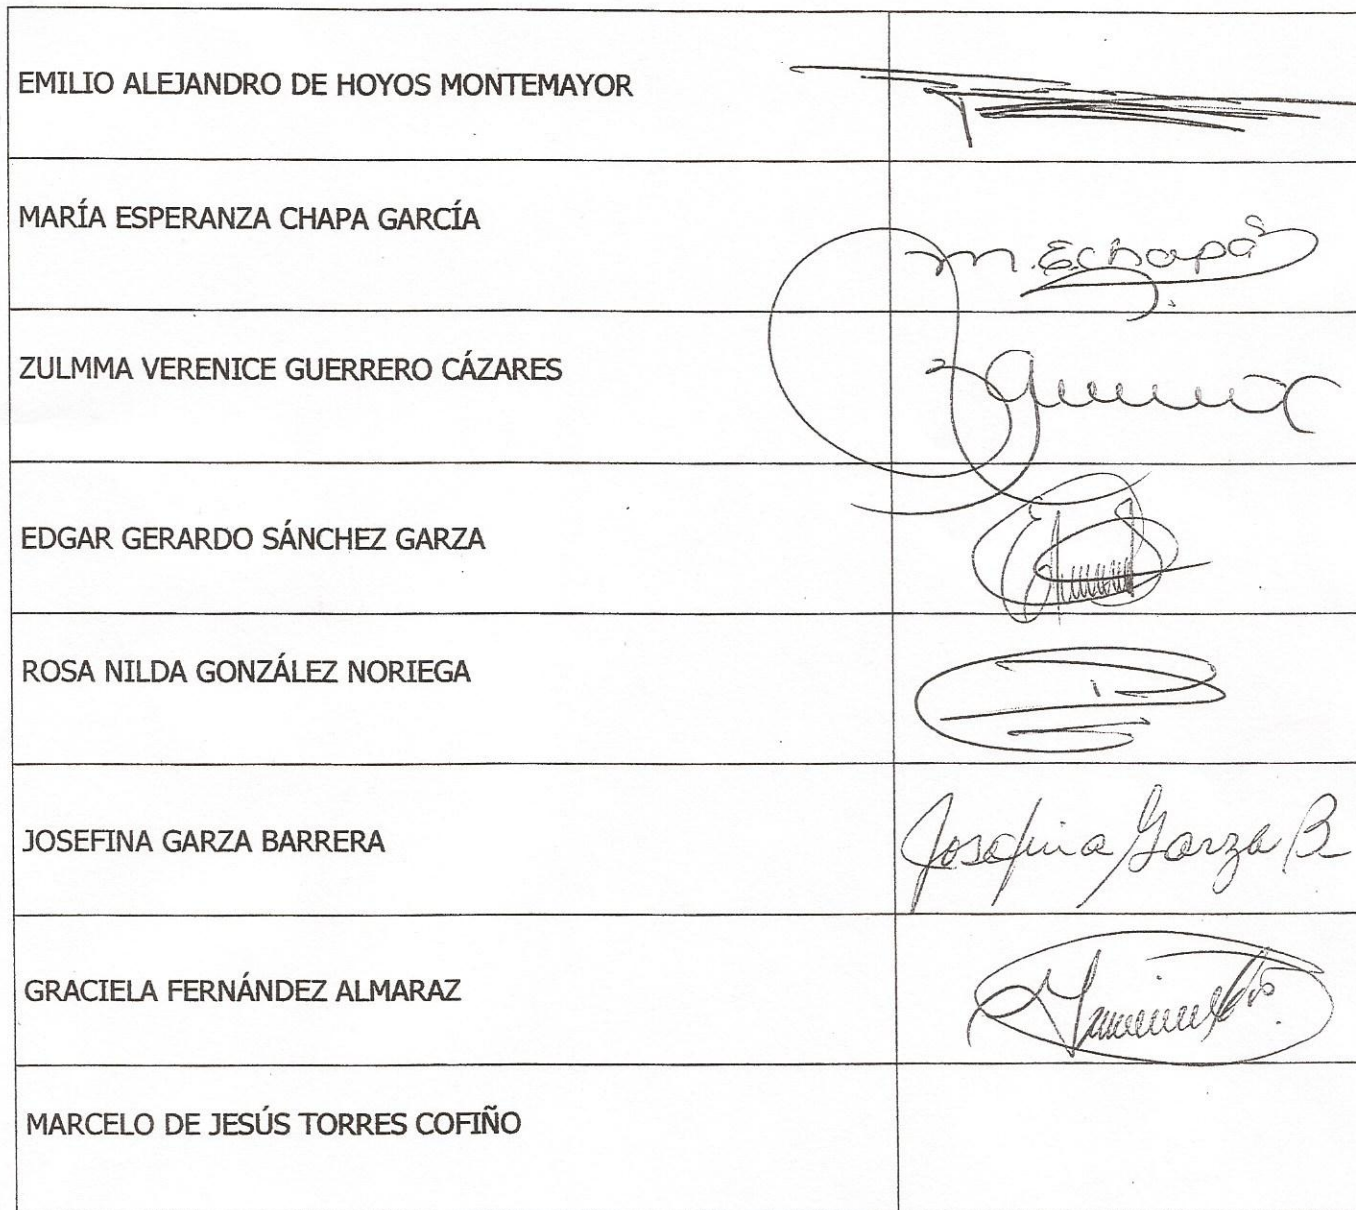 EMILIO ALEJANDRO DE HOYOS MONTEMAYOR
MARÍA ESPERANZA CHAPA GARCÍA
M.E.Chapa
ZULMMA VERENICE GUERRERO CÁZARES
EDGAR GERARDO SÁNCHEZ GARZA
ROSA NILDA GONZÁLEZ NORIEGA
JOSEFINA GARZA BARRERA
Josefina Garza B
GRACIELA FERNÁNDEZ ALMARAZ
MARCELO DE JESÚS TORRES COFIÑO